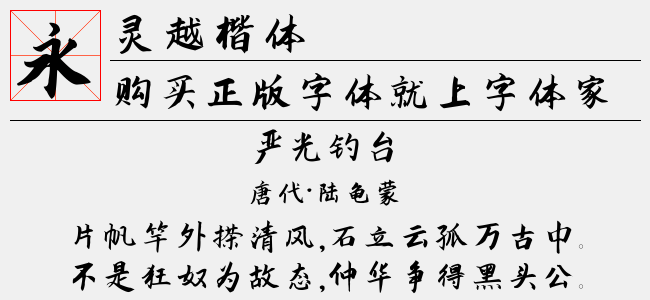 永
灵越楷体
购买正版字体就上字体家
严光钓台
唐代·陆龟蒙
片帆竿外揉清风,石立云孤万古中。
不是狂奴为故态,仲华争得黑头公。